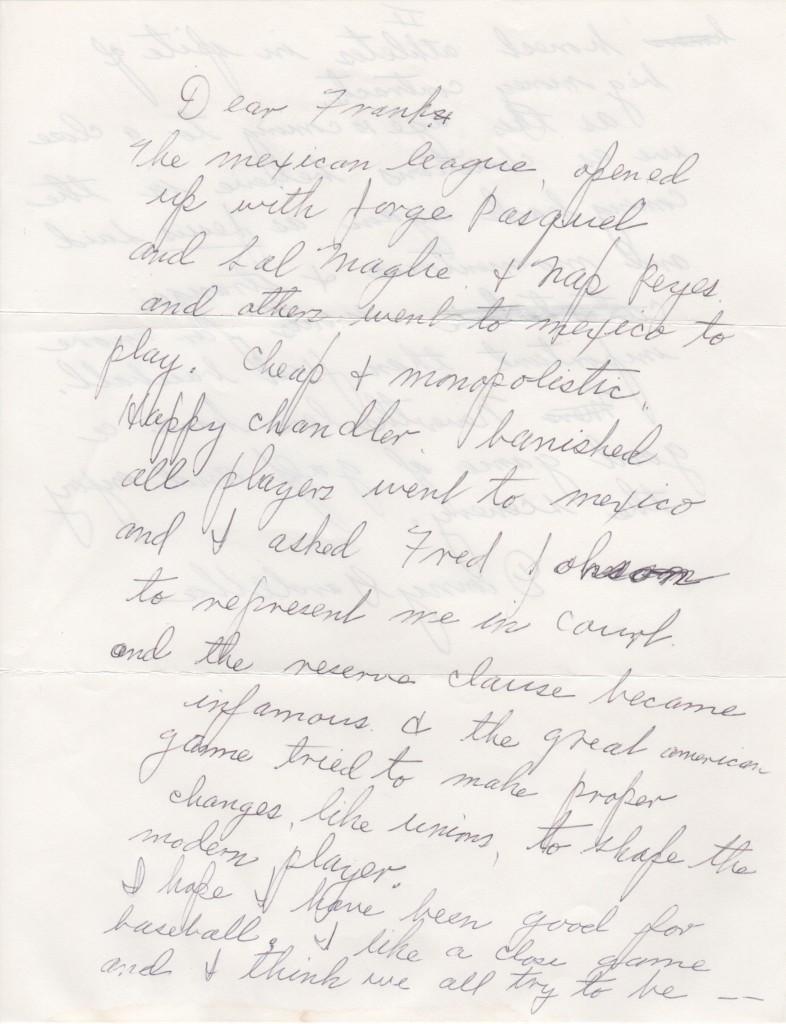 Dear Frank
The mexican league, opened
up with Jorge Pasquel
and Sal Maglie & Nap Reyes.
and others went to mexico to
play. Cheap & monopolistic,
Happy chandler. banished
all players went to mexico
and I asked Fred Johnson
to represent me in court.
and the reserve clause became
infamous. & the great american
game tried to make proper
changes, like unions, to shape the
modern player.
I hope I have been good for
baseball. I like a close game
and I think we all try to be --